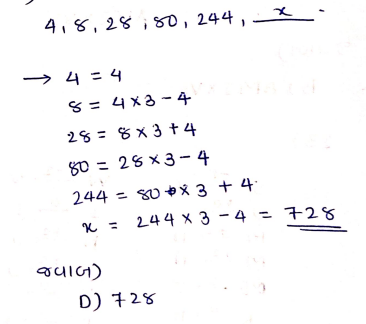 4, 8, 28, 80, 244, x
→ 4 = 4
8 = 4 × 3 - 4
28 = 8 × 3 + 4
80 = 28 × 3 - 4
244 = 80 × 3 + 4
x = 244 × 3 - 4 = 728
જવાબ)
D) 728